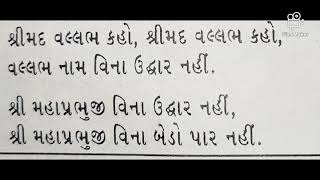 શ્રીમદ વલ્લભ કહો, શ્રીમદ વલ્લભ કહો,
વલ્લભ નામ વિના ઉદ્ધાર નહીં.
શ્રી મહાપ્રભુજી વિના ઉદ્ધાર નહીં,
શ્રી મહાપ્રભુજી વિના બેડો પાર નહીં.